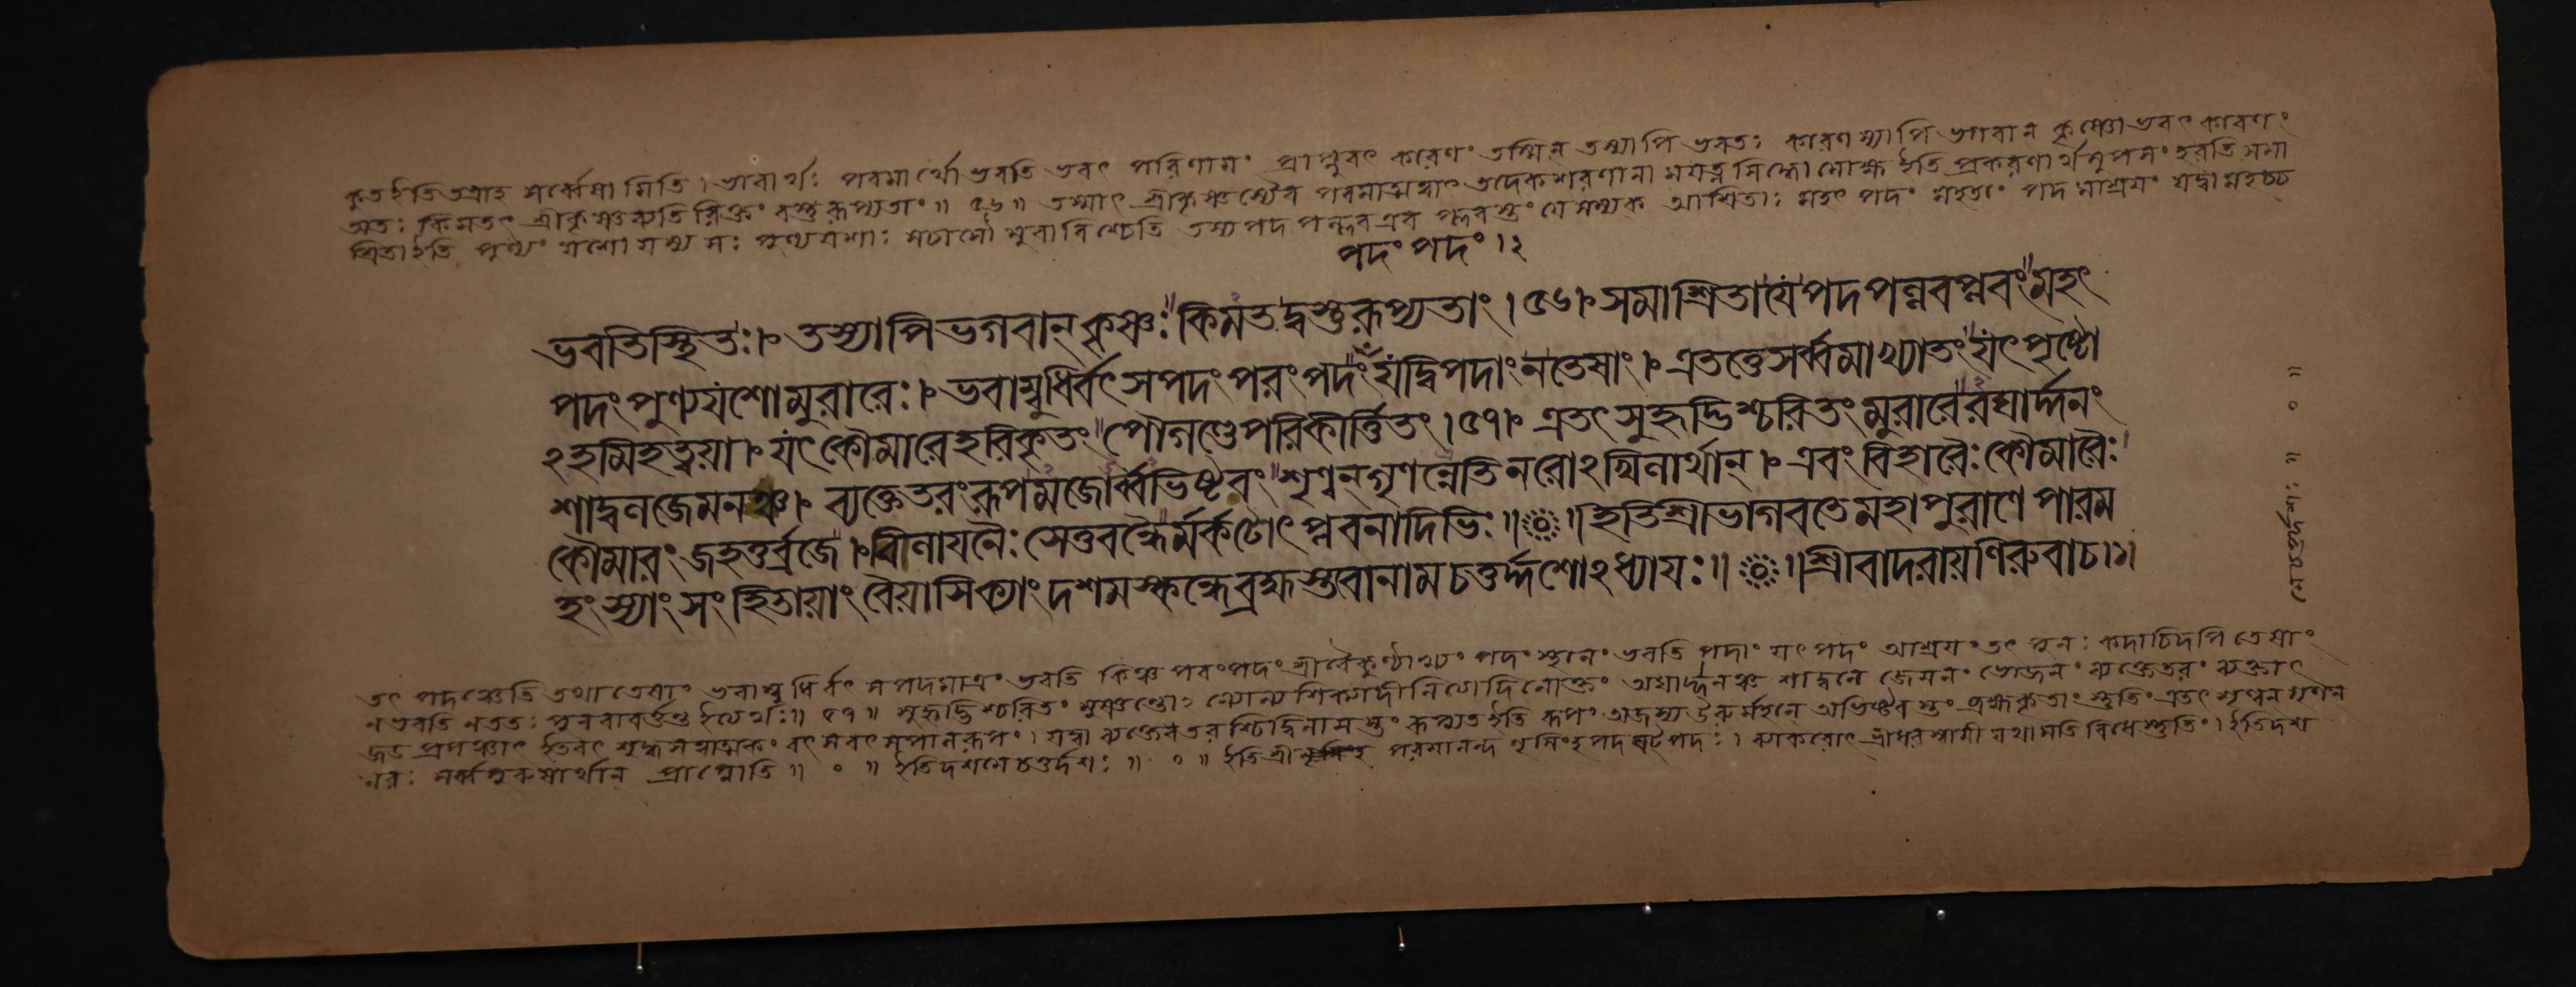 কুত ইতি তত্রাহ সর্ব্বেষামিতি । ভাবার্থঃ পরমার্থো ভবতি ভবৎ পরিণামং প্রাপ্নুবৎ কারণং তস্মিন তস্যাপি ভবতঃ কারণস্যাপি ভগবান কৃষ্ণো ভবৎ কারণং
অতঃ কিমতৎ শ্রীকৃষ্ণব্যতিরিক্তং বস্তু রূপ্যতাং ॥ ৫৬ ॥ তস্মাৎ শ্রীকৃষ্ণস্যৈব পরমাত্মত্বাৎ তদেকশরণানামযত্নসিদ্ধো মোক্ষ ইতি প্রকরণার্থমুপসংহরতি সমা
শ্রিতা ইতি পুণ্যং যশো যস্য সঃ পুণ্যযশাঃ সচাসৌ মুরারিশ্চেতি তস্য পদপল্লব এব প্লবস্তং যে সম্যক আশ্রিতাঃ মহৎ পদং মহতাং পদমাশ্রয়ং যদ্বা মহচ্চ
পদং পদং । ২
ভবতিস্থিতঃ । তস্যাপিভগবান্কৃষ্ণঃ কিমতদ্বস্তুরূপ্যতাং । ৫৬ । সমাশ্রিতাযেপদপল্লবপ্লবং মহৎ
পদংপুণ্যযশোমুরারেঃ । ভবাম্বুধির্বৎসপদংপরংপদং যদ্বিপদাংনতেষাং । এতত্তেসর্ব্বমাখ্যাতং যৎপৃষ্টো
ঽহমিহত্বয়া । যৎকৌমারেহরিকৃতং পৌগণ্ডেপরিকীর্ত্তিতং । ৫৭ । এতৎসুহৃদ্ভিশ্চরিতংমুরারেরঘার্দ্দনং
শাদ্বলজেমনঞ্চ । ব্যক্তেতরংরূপমজোর্ব্বভিষ্টবং শৃণ্বন্গৃণন্নেতিনরোঽখিলার্থান্ । এবংবিহারৈঃকৌমারৈঃ
কৌমারংজহতুর্ব্রজে । নিলায়নৈঃসেতুবন্ধৈর্মর্কটোৎপ্লবনাদিভিঃ ॥ ০ ॥ ইতিশ্রীভাগবতেমহাপুরাণেপারম
হংস্যাংসংহিতায়াংবৈয়াসিক্যাংদশমস্কন্ধেব্রহ্মস্তবোনামচতুর্দ্দশোঽধ্যায়ঃ ॥ ০ ॥ শ্রীবাদরায়ণিরুবাচ । ১ ।
তৎ পদঞ্চেতি তথা তেষাং ভবাম্বুধির্বৎসপদমাত্রং ভবতি কিঞ্চ পরংপদং শ্রীবৈকুণ্ঠাখ্যং পদং স্থানং ভবতি পদাং যৎ পদং আশ্রয়ং তৎ পুনঃ কদাচিদপি তেষাং
ন ভবতি ন ততঃ পুনরাবর্ত্তন্ত ইত্যর্থঃ ॥ ৫৭ ॥ সুহৃদ্ভিশ্চরিতং অঘার্দ্দনঞ্চ শাদ্বলে জেমনং ভোজনং ব্যক্তেতরং ব্যক্তাৎ
জড়প্রপঞ্চাৎ ইতরৎ শুদ্ধসত্ত্বাত্মকং বৎসবৎসপালরূপং । রূপং অজস্য উরুর্মহান অভিষ্টবস্তং ব্রহ্মকৃতাং স্তুতিং এতৎ শৃণ্বন গৃণন
নরঃ সর্ব্বপুরুষার্থান প্রাপ্নোতি ॥ ০ ॥ ইতিদশমে চতুর্দশঃ ॥ ০ ॥ ইতিশ্রী পরমানন্দ নৃসিংহপদষট্পদঃ । ব্যাকরোৎ শ্রীধরস্বামী যথামতি বিধেস্তুতিং । ইতিদশ
মেচতুর্দশঃ ॥ ০ ॥